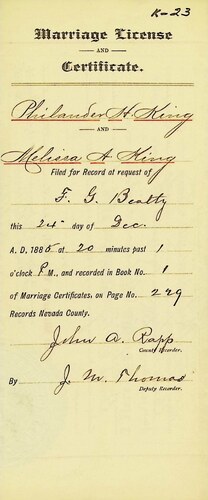 K-23
Marriage License
AND
Certificate.
Philander H. King
AND
Melissa A King
Filed for Record at request of
F. G. Beatty
this 24 day of Dec.
A. D. 1885 at 20 minutes past 1
o'clock P M., and recorded in Book No. 1
of Marriage Certificates, on Page No. 229
Records Nevada County.
John A. Rapp
County Recorder.
By J. M. Thomas
Deputy Recorder.